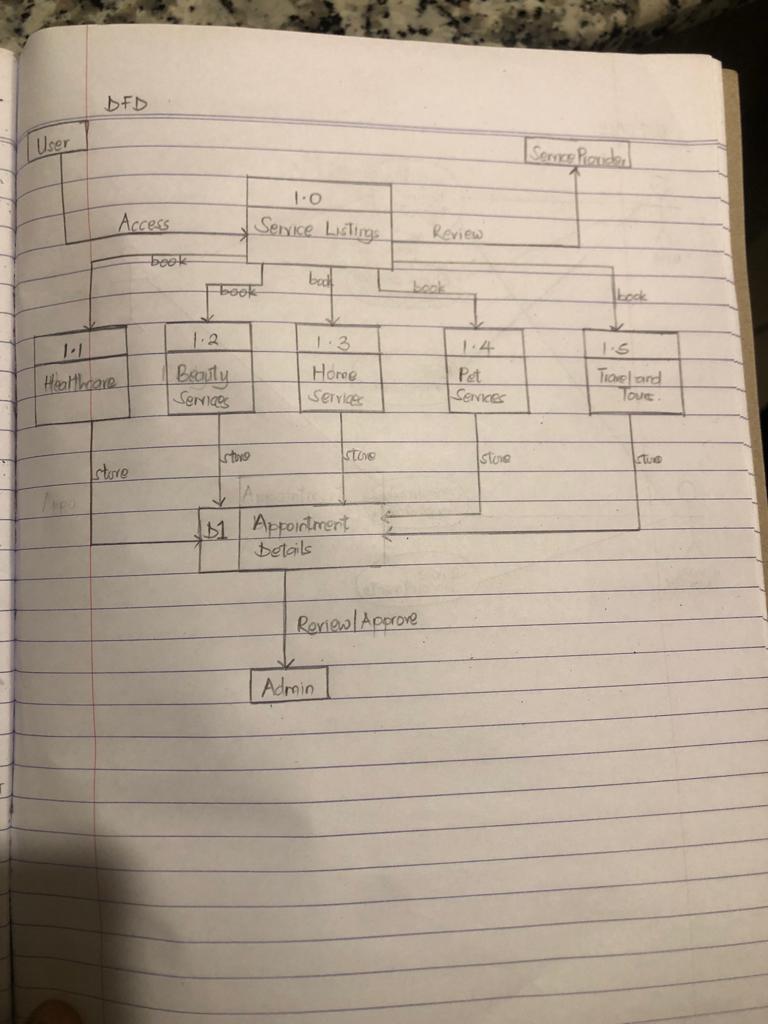 DFD
User
Service Provider
1.0
Service Listings
Access
Review
book
book
book
book
book
1.1
Healthcare
1.2
Beauty
Services
1.3
Home
Services
1.4
Pet
Services
1.5
Travel and
Tours.
store
store
store
store
store
D1
Appointment
Details
Review/Approve
Admin